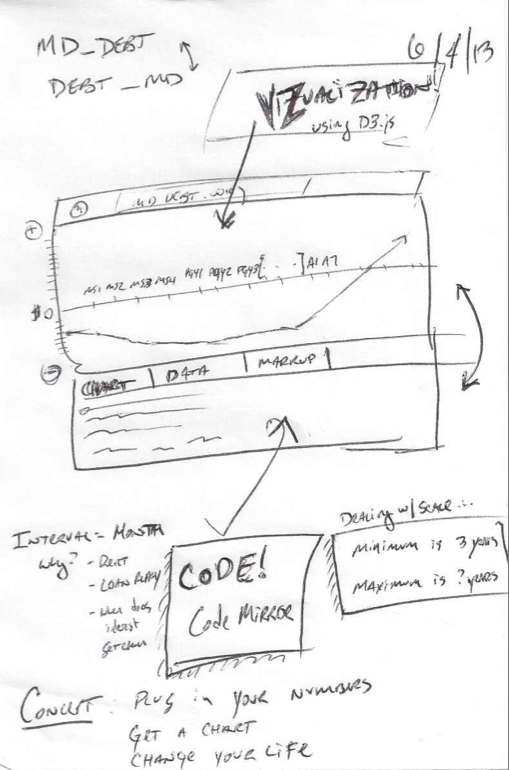 MD_DEBT
DEBT_MD
6/4/13
VIZUALIZATION!
using D3.js
+
MD DEBT
MS1 MS2 MS3 MS4 PGY1 PGY2 PGY3
$0
CHART | DATA | MARKUP
INTERVAL = MONTH
why? - RENT
- LOAN
- When does
interest
CODE!
Code MIRROR
Dealing w/ SCALE...
MINIMUM IS 3 YEARS
MAXIMUM IS ? YEARS
CONCEPT: PLUG IN YOUR NUMBERS
GET A CHART
CHANGE YOUR LIFE